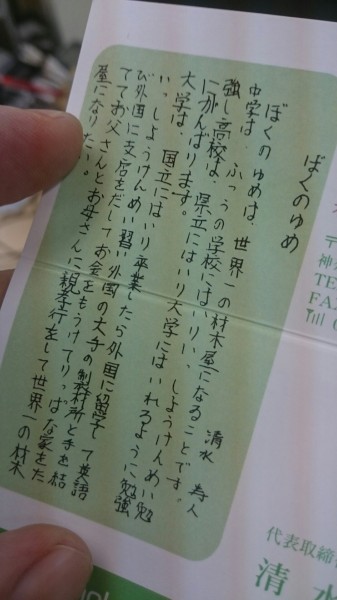 ぼくのゆめ
清水 寿人
ぼくのゆめは、世界一の材木屋になることです。
中学は、ふつうの学校にはいり、いっしょうけんめい勉
強し高校は、県立にはいり大学にはいれるように勉強
にがんばります。
大学は、国立にはいり卒業したら外国に留学して英語
をいっしょうけんめい習い外国の大手の製材所と手を結
び外国に支店をだしてお金をもうけてりっぱな家をた
ててお父さんとお母さんに親孝行をして世界一の材木
屋になりたい。
〒
神奈
TE
FA
代表取締
清水